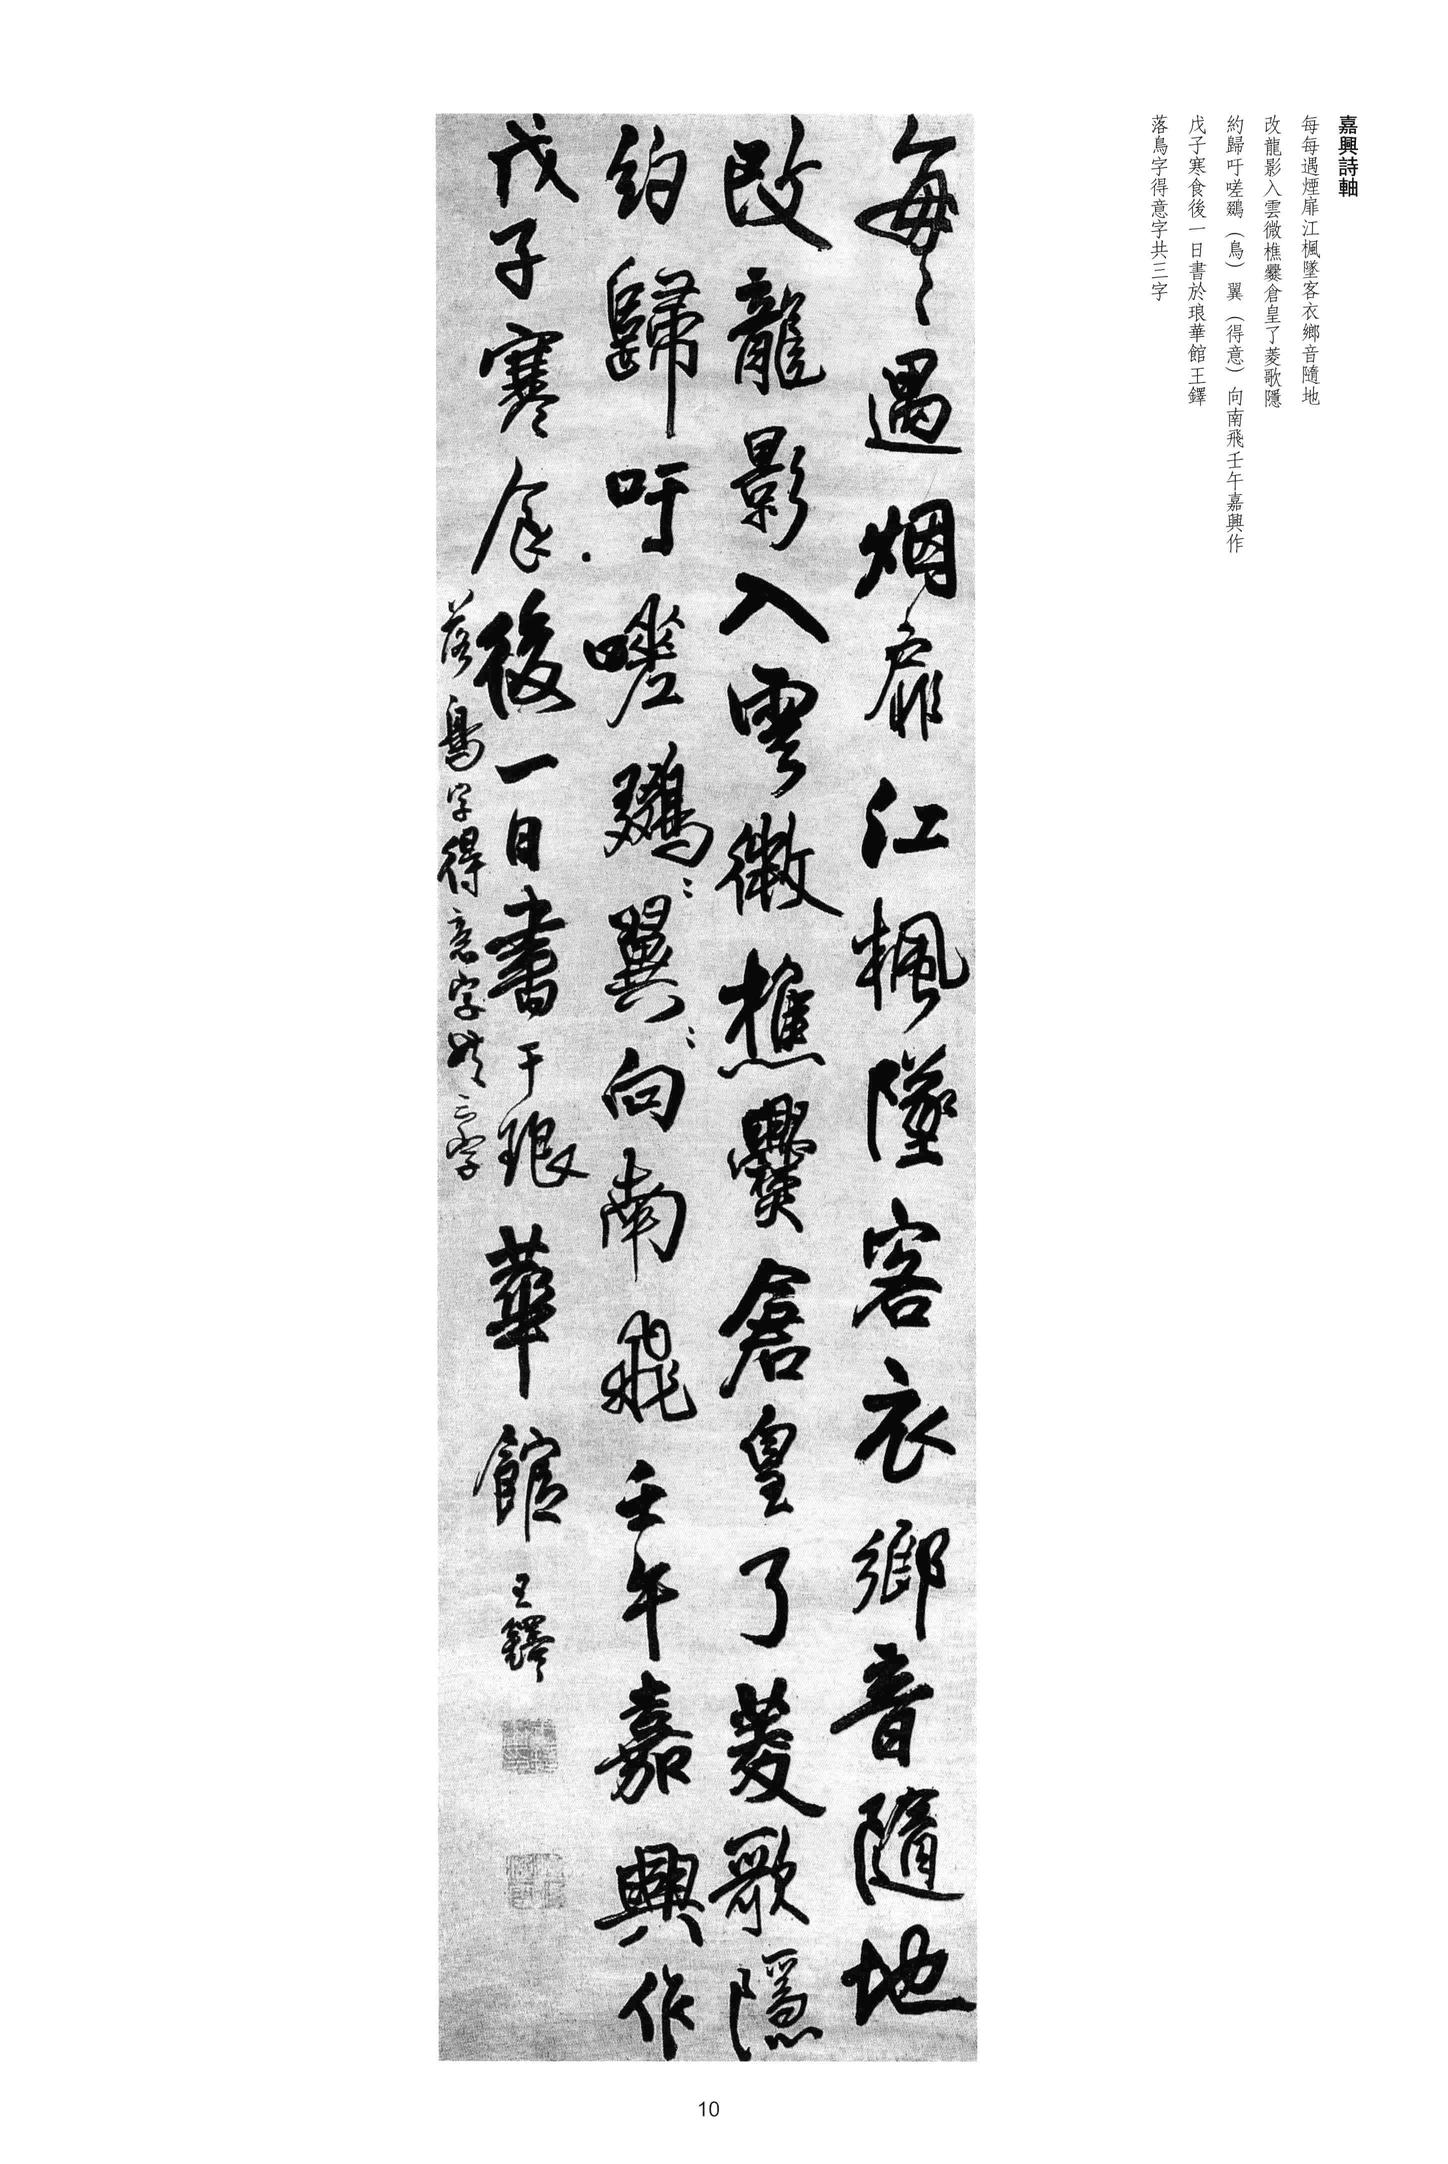 嘉興詩軸
每每遇煙扉江楓墜客衣鄉音隨地
改龍影入雲微樵爨倉皇了菱歌隱
約歸吁嗟鷄（鳥）翼（得意）向南飛壬午嘉興作
戊子寒食後一日書於琅華館王鐸
落鳥字得意字共三字
每〻遇烟扉江楓墜客衣鄉音隨地
改龍影入雲微樵爨倉皇了菱歌隱
約歸吁嗟鷄翼向南飛壬午嘉興作
戊子寒食後一日書于琅華館王鐸
落鳥字得意字共三字
10